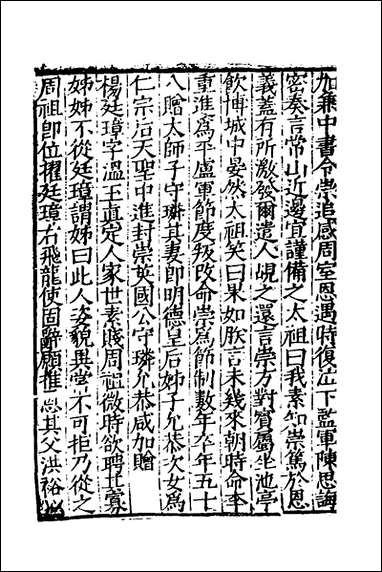 加兼中書令崇追感周室恩遇時復泣下監軍陳思誨
密奏言常山近邊宜謹備之太祖曰我素知崇篤於恩
義蓋有所激發爾遣人覘之還言崇方對賓屬坐池亭
飲博城中晏然太祖笑曰果如朕言未幾來朝時命李
重進爲平盧軍節度叛改命崇爲節制數年卒年五十
八贈太師子守璘其妻即明德皇后姊子允恭次女爲
仁宗后天聖中進封崇英國公守璘允恭咸加贈
楊廷璋字溫玉眞定人家世素賤周祖微時欲聘其寡
姊姊不從廷璋謂姊曰此人姿貌異常不可拒乃從之
周祖即位擢廷璋右飛龍使固辭願推恩其父洪裕